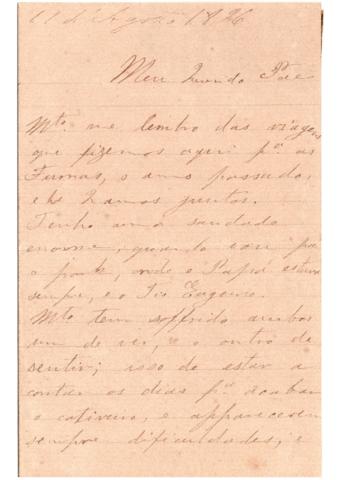 11 d'Agosto 1896
Meu Querido Pae
Mto. me lembro das viagens
que fizemos aqui pª as
Furnas, o anno passado,
estes 2 annos juntos.
Tenho uma saudade
enorme, quando vou pª
o, onde o Papá estava
sempre, e o Tio Eugenio.
Mto tem soffrido ambos
um de ver, e o outro de
sentir; isso de estar a
contar os dias pª acabar
o cativeiro, e apparecerem
sempre dificuldades, e